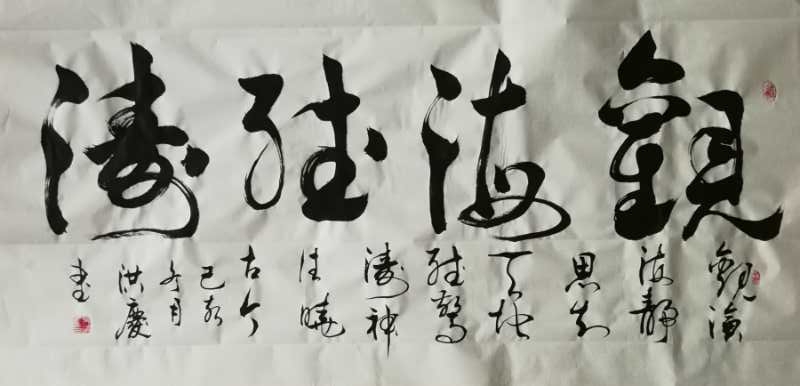 觀海聽濤
觀滄
海靜
思知
天地
聽驚
濤神
往曉
古今
己亥
冬月
洪慶
書